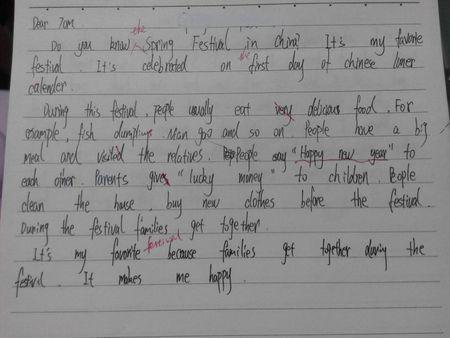 Dear Tom
the
Do you know Spring Festival in china? It's my favorite
the
festival. It's celebrated on first day of chinese luner
calender.
During this festival, people usually eat very delicious food. For
example, fish dumplings. Nian gao and so on. People have a big
meal and visited the relatives. People say "Happy new year" to
each other. Parents gives "lucky money" to children. People
clean the house, buy new clothes before the festival.
During the festival families get together.
festival
It's my favorite because families get together during the
festival. It makes me happy.